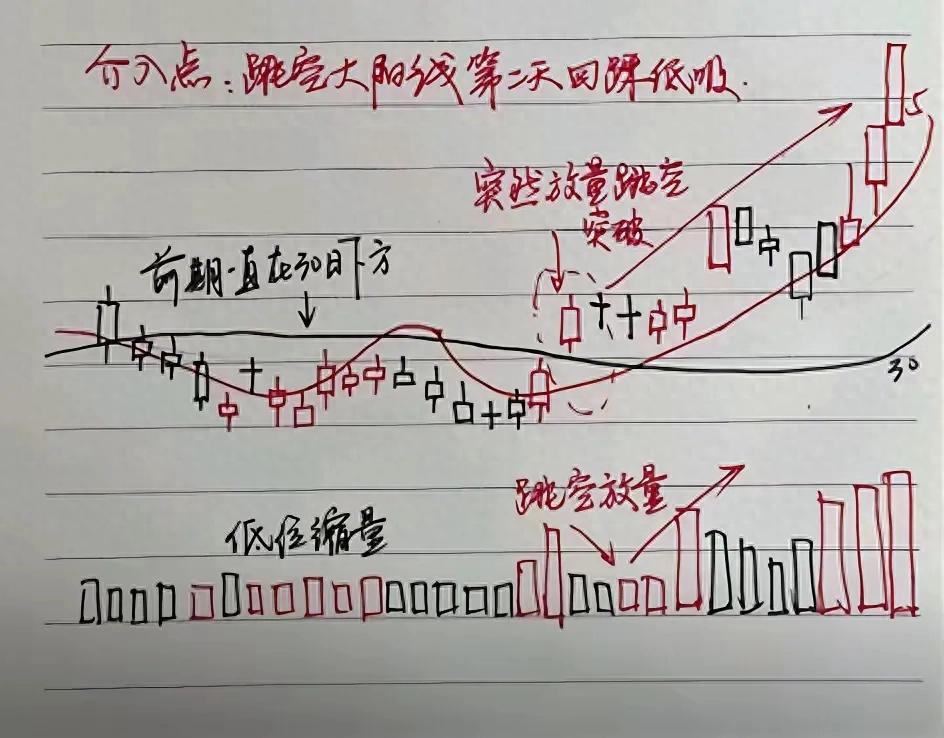 介入点:跳空大阳线第二天回踩低吸.
突然放量跳空
突破
前期一直在30日下方
5
30
跳空放量
低位缩量